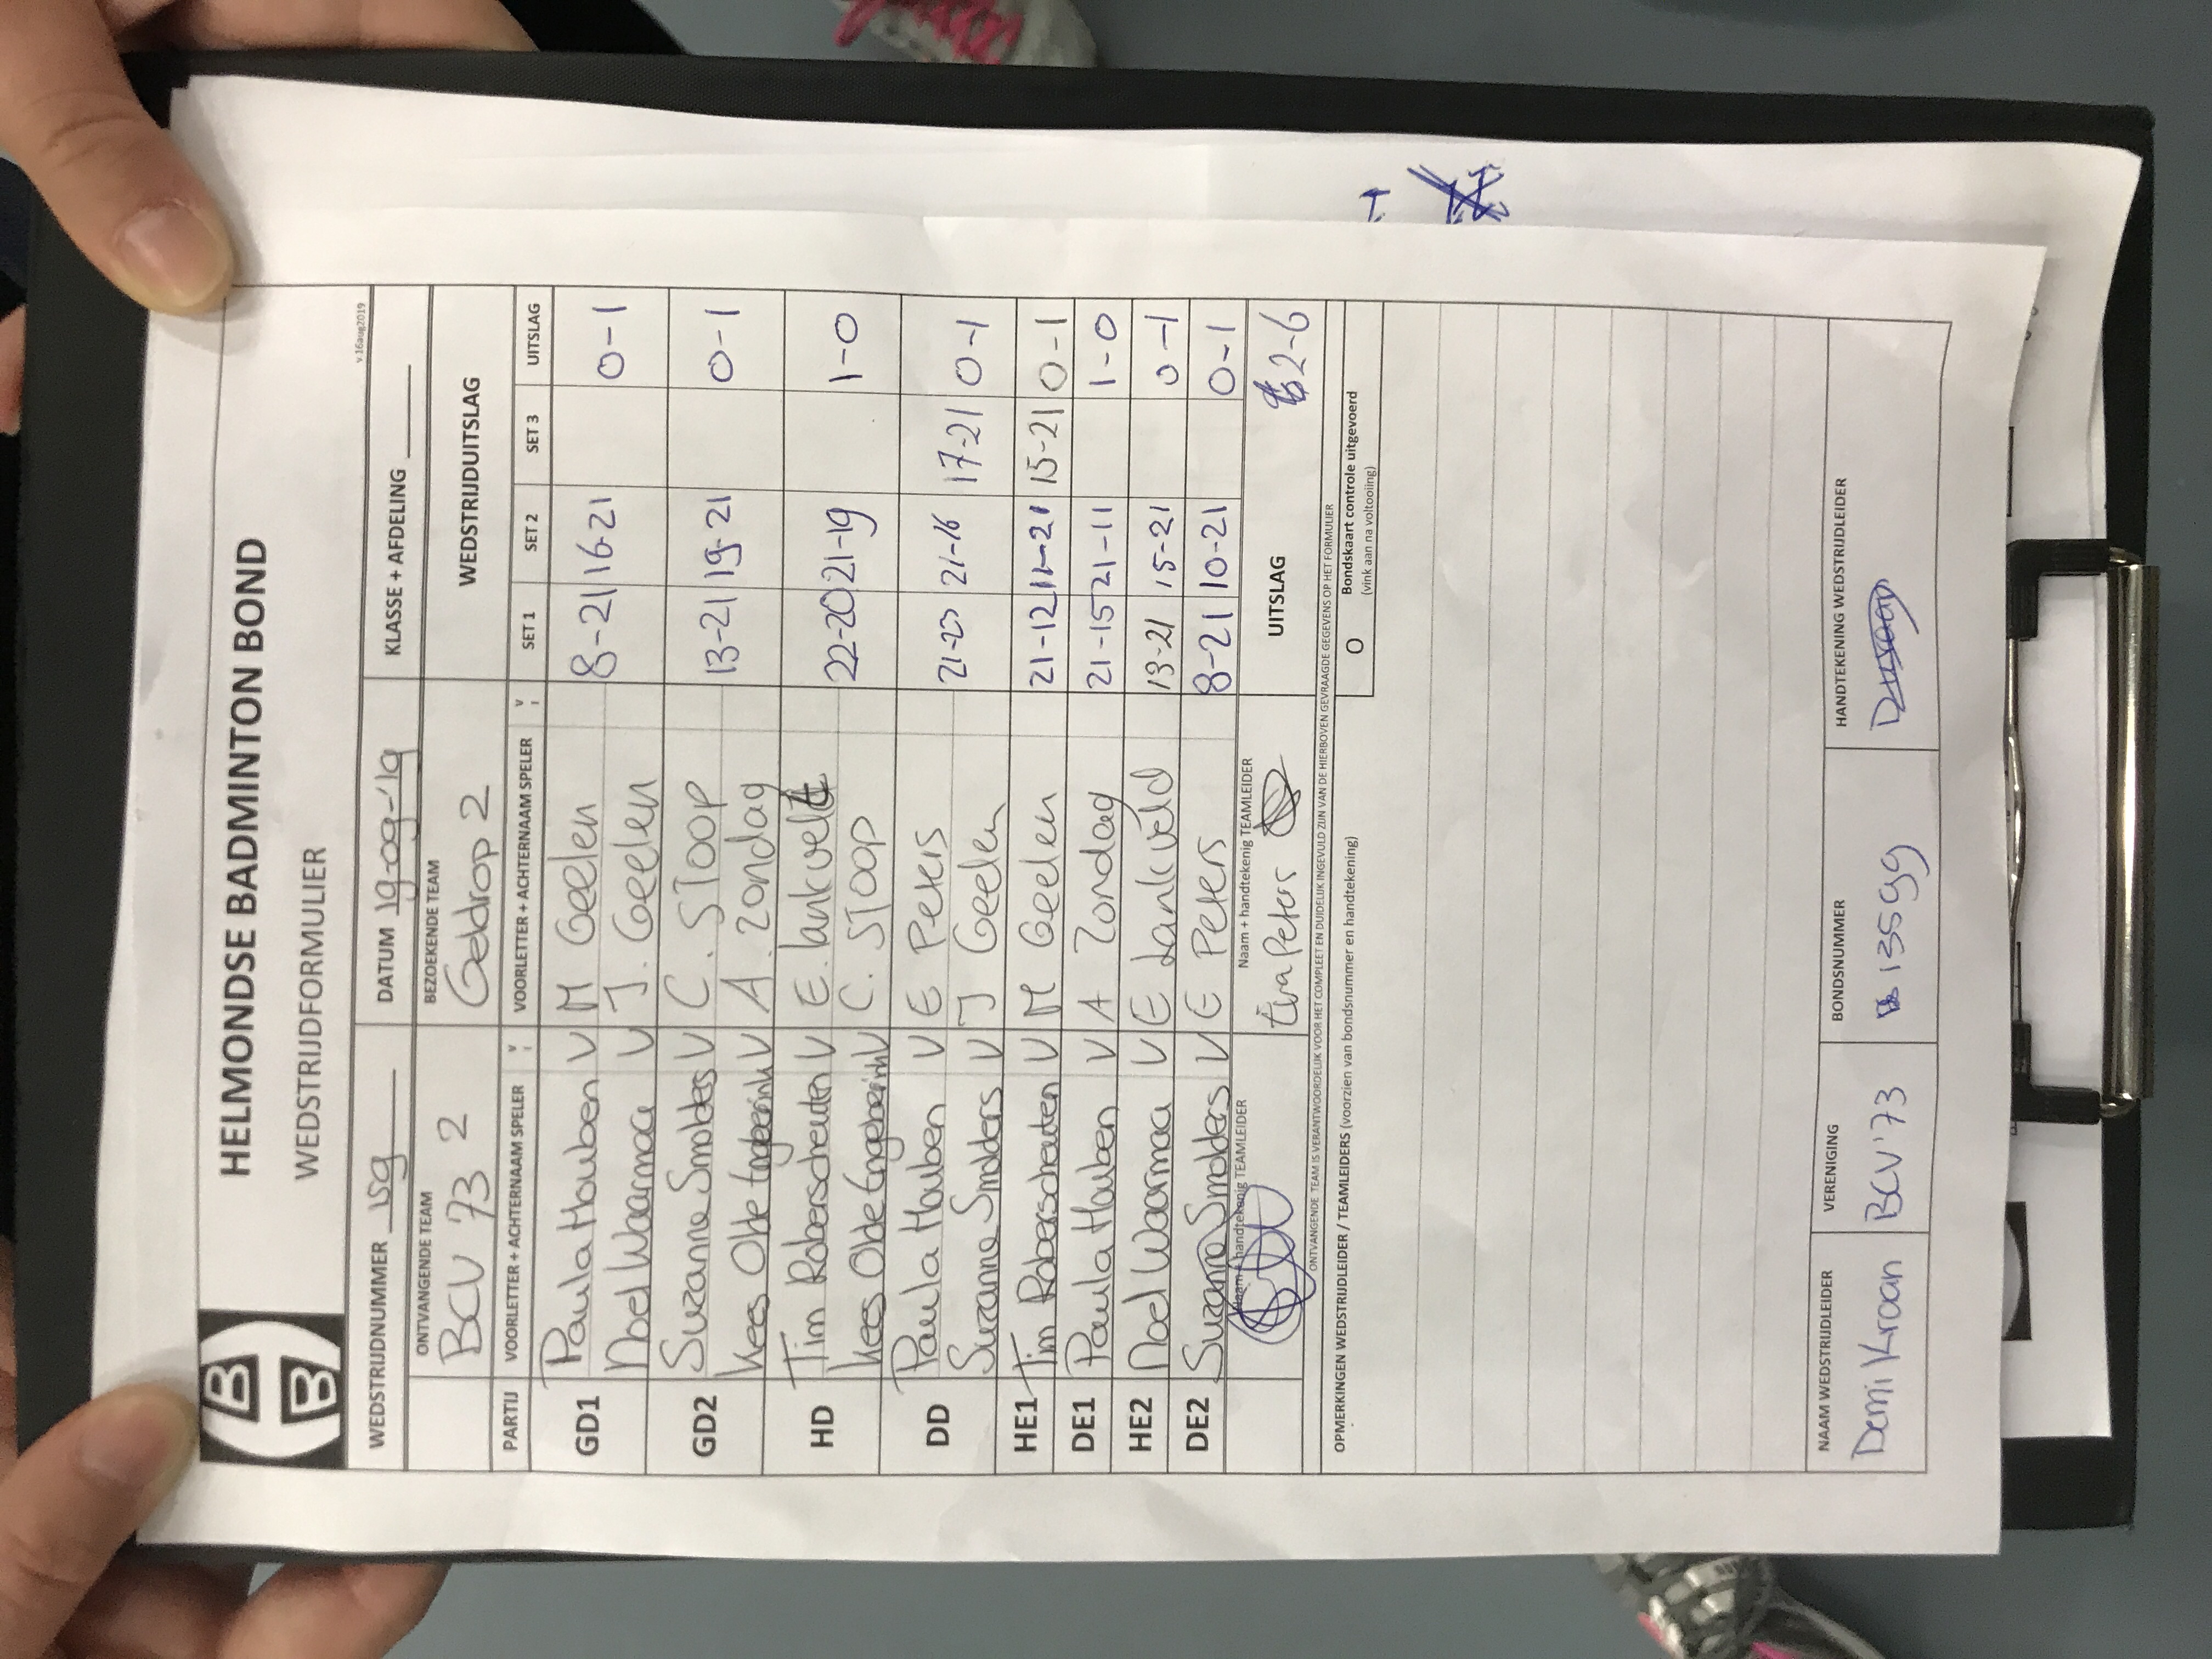 B
B
HELMONDSE BADMINTON BOND
WEDSTRIJDFORMULIER
v.16aug2019
WEDSTRIJDNUMMER 159 DATUM 19-09-'19 KLASSE + AFDELING
ONTVANGENDE TEAM BEZOEKENDE TEAM WEDSTRIJDUITSLAG
BCV 73 2 Geldrop 2
PARTIJ VOORLETTER + ACHTERNAAM SPELER V VOORLETTER + ACHTERNAAM SPELER V SET 1 SET 2 SET 3 UITSLAG
GD1 Paula Houben V M Geelen 8-21 16-21 0-1
Noel Waarmaa V J. Geelen
GD2 Suzanne Smolders V C. Stoop 13-21 19-21 0-1
Kees Olde Engberink V A. Zondag
HD Tim Roberscheuten V E. Lankvelt 22-20 21-19 1-0
Kees Olde Engberink V C. Stoop
DD Paula Houben V E Peters 21-23 21-16 17-21 0-1
Suzanne Smolders V J Geelen
HE1 Tim Roberscheuten V M Geelen 21-12 11-21 15-21 0-1
DE1 Paula Houben V A Zondag 21-15 21-11 1-0
HE2 Noel Waarmaa V E Lankveld 13-21 15-21 0-1
DE2 Suzanne Smolders V E Peters 8-21 10-21 0-1
Naam + handtekenig TEAMLEIDER Naam + handtekenig TEAMLEIDER UITSLAG 2-6
Eva Peters
ONTVANGENDE TEAM IS VERANTWOORDELIJK VOOR HET COMPLEET EN DUIDELIJK INGEVULD ZIJN VAN DE HIERBOVEN GEVRAAGDE GEGEVENS OP HET FORMULIER
OPMERKINGEN WEDSTRIJDLEIDER / TEAMLEIDERS (voorzien van bondsnummer en handtekening) O Bondskaart controle uitgevoerd
(vink aan na voltooiing)
NAAM WEDSTRIJDLEIDER VERENIGING BONDSNUMMER HANDTEKENING WEDSTRIJDLEIDER
Demi Kroan BCV'73 13599